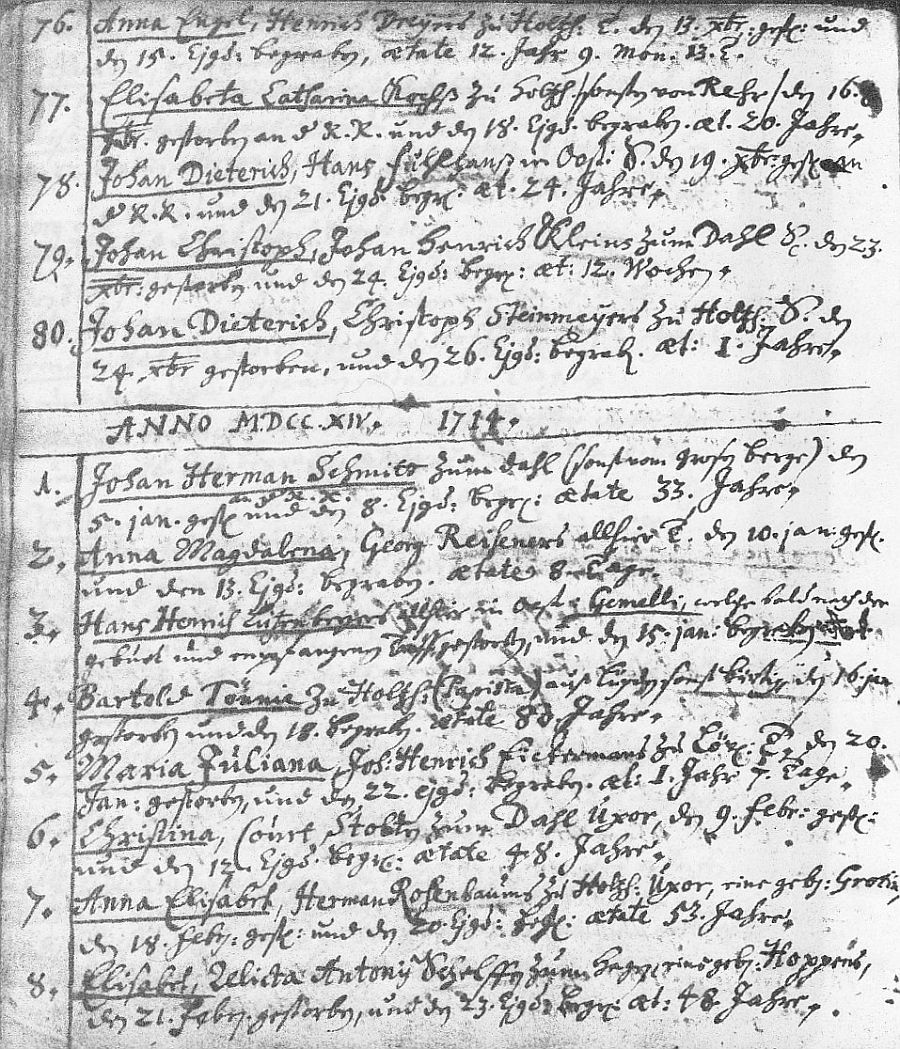 76. Anna Engel, Henrich Dreyers zu Holtzh: T. den 13. xbr: gest: und
den 15. Ejsd: begraben, ætate 12. Jahr 9. Mon. 13. T.
77. Elisabeta Catharina Kochß zu Holtzh: /sonsten von Rehr/ den 16.
xbr. gestorben an d. R. R. und den 18. Ejsd. begraben. æt. 20. Jahre.
78. Johan Dieterich, Hans in Oest: S. den 19. xbr: gest: an
d. R. R. und den 21. Ejsd: begr: æt. 24. Jahre.
79. Johan Christoph, Johan Henrich Kleins zum Dahl S. den 23.
xbr: gestorben und den 24. Ejsd: begr: æt: 12. Wochen.
80. Johan Dieterich, Christoph Steinmeyers zu Holtzh: S. den
24. xbr gestorben, und den 26. Ejsd: begrab. æt: 1. Jahre.
ANNO MDCC.XIV. 1714.
1. Johan Herman Schmitt zum Dahl (sonst vom großen berge) den
an d. R. R.
5. jan. gest: und den 8. Ejsd: begr: ætate 33. Jahre.
2. Anna Magdalena, Georg Reiseners allhier T. den 10. jan: gest.
und den 13. Ejsd: begraben. ætate 8. Tage.
3. Hans Henrich in Oest: Gemelli, welche bald nach der
geburt und empfangenen Tauff gestorben, und den 15. jan: begraben
4. Bartold Tönnie zu Holtzh: (Papista) auß den 16. jan
gestorben und den 18. begraben. ætate 80. Jahre.
5. Maria Juliana, Joh: Henrich Fickermans zu T. den 20.
Jan: gestorben, und den 22. ejsd: begraben. æt: 1. Jahr 7. Tage.
6. Christina, Court Stolten zum Dahl Uxor, den 9. febr: gest:
und den 12. Ejsd. begr: ætate 48. Jahre.
7. Anna Elisabet, Herman Rosenbaums zu Holtzh: Uxor, eine geb: Grotin,
den 18. febr: gest: und den 20. Ejsd: ætate 53. Jahre.
8. Elisabet, Relicta Antonij zum eine geb: Hoppens,
den 21. febr. gestorben, und den 23. Ejsd: begr: æt: 48. Jahre.